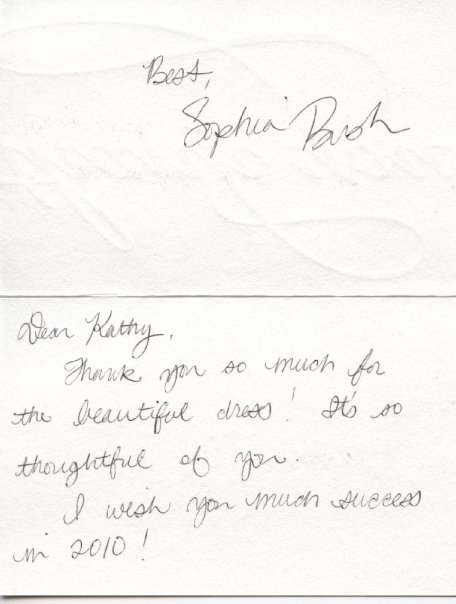 Best,
Sophia Bush
Dear Kathy,
Thank you so much for
the beautiful dress! It's so
thoughtful of you.
I wish you much success
in 2010!